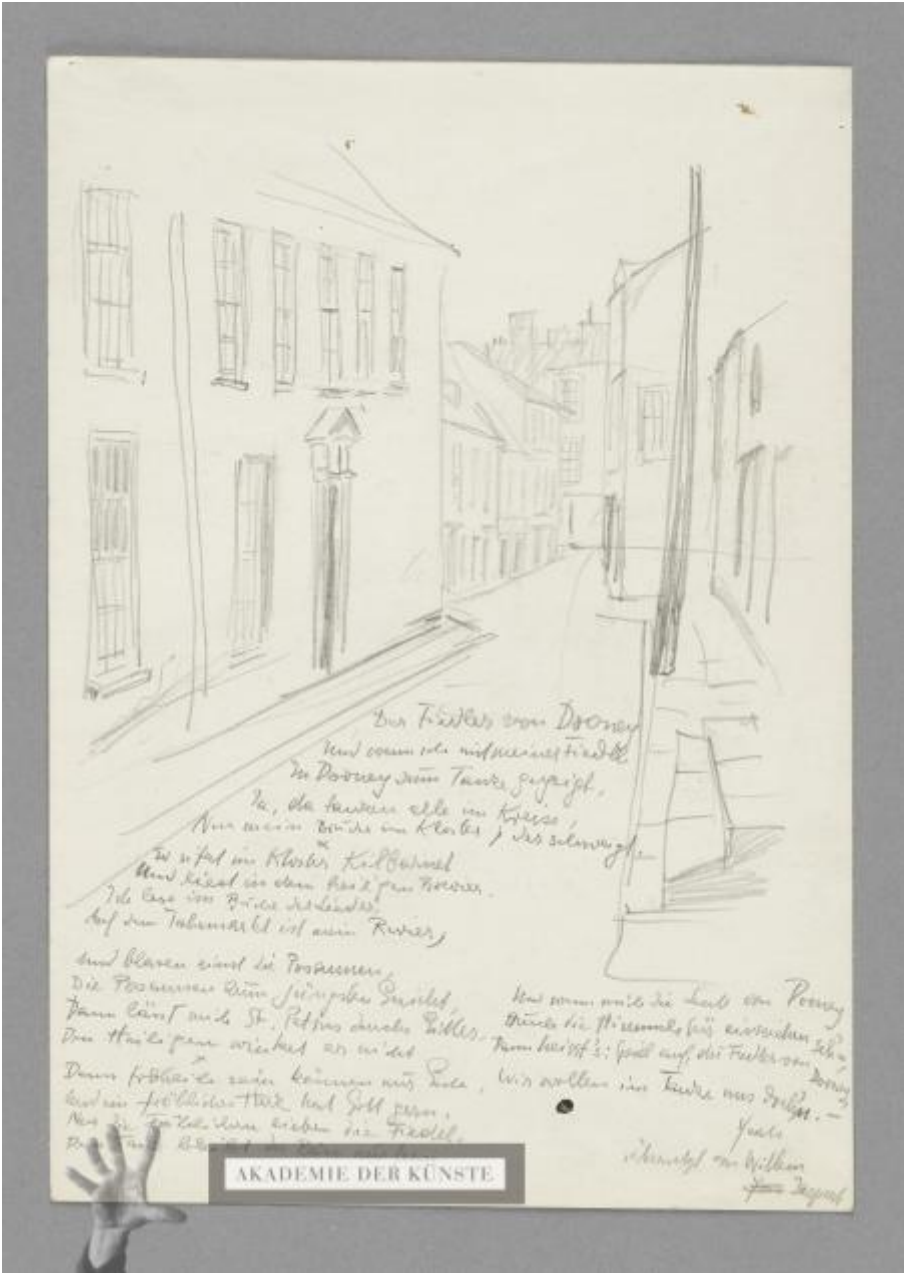 Der Fiedler von Dooney
Und wenn ich mit meiner Fiedel
In Dooney zum Tanze gegeigt,
Ja, da tanzen alle im Kreise,
Nur mein Bruder im Kloster, der schweigt.
Er sitzt im Kloster Kilbarnet
Und liest in dem heil'gen Brevier.
Ich lese im Buche der Lieder,
Auf dem ist mein Revier,
Und blasen einst die Posaunen,
Die Posaunen zum jüngsten Gericht,
Dann lässt mich St. Petrus durchs
Den Heiligen winket er nicht
Denn fröhlich sein können nur
und ein fröhliches Herz hat Gott gern.
Nur die Fröhlichen lieben die Fiedel,
Und wenn mich die Leute von Dooney
Durch die Himmelstür sehn
Dann heisst's: Spiel auf, du Fiedler von Dooney
Wir wollen im Tanze uns drehn. –
Yeats
übersetzt von Willem
AKADEMIE DER KÜNSTE